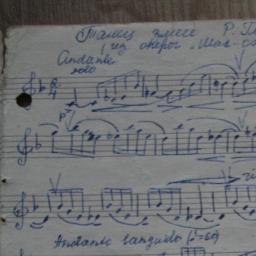 Танец змеи Р. Г
(из оперы „Шах-се
Andante
solo
Andante languido (♩=60)